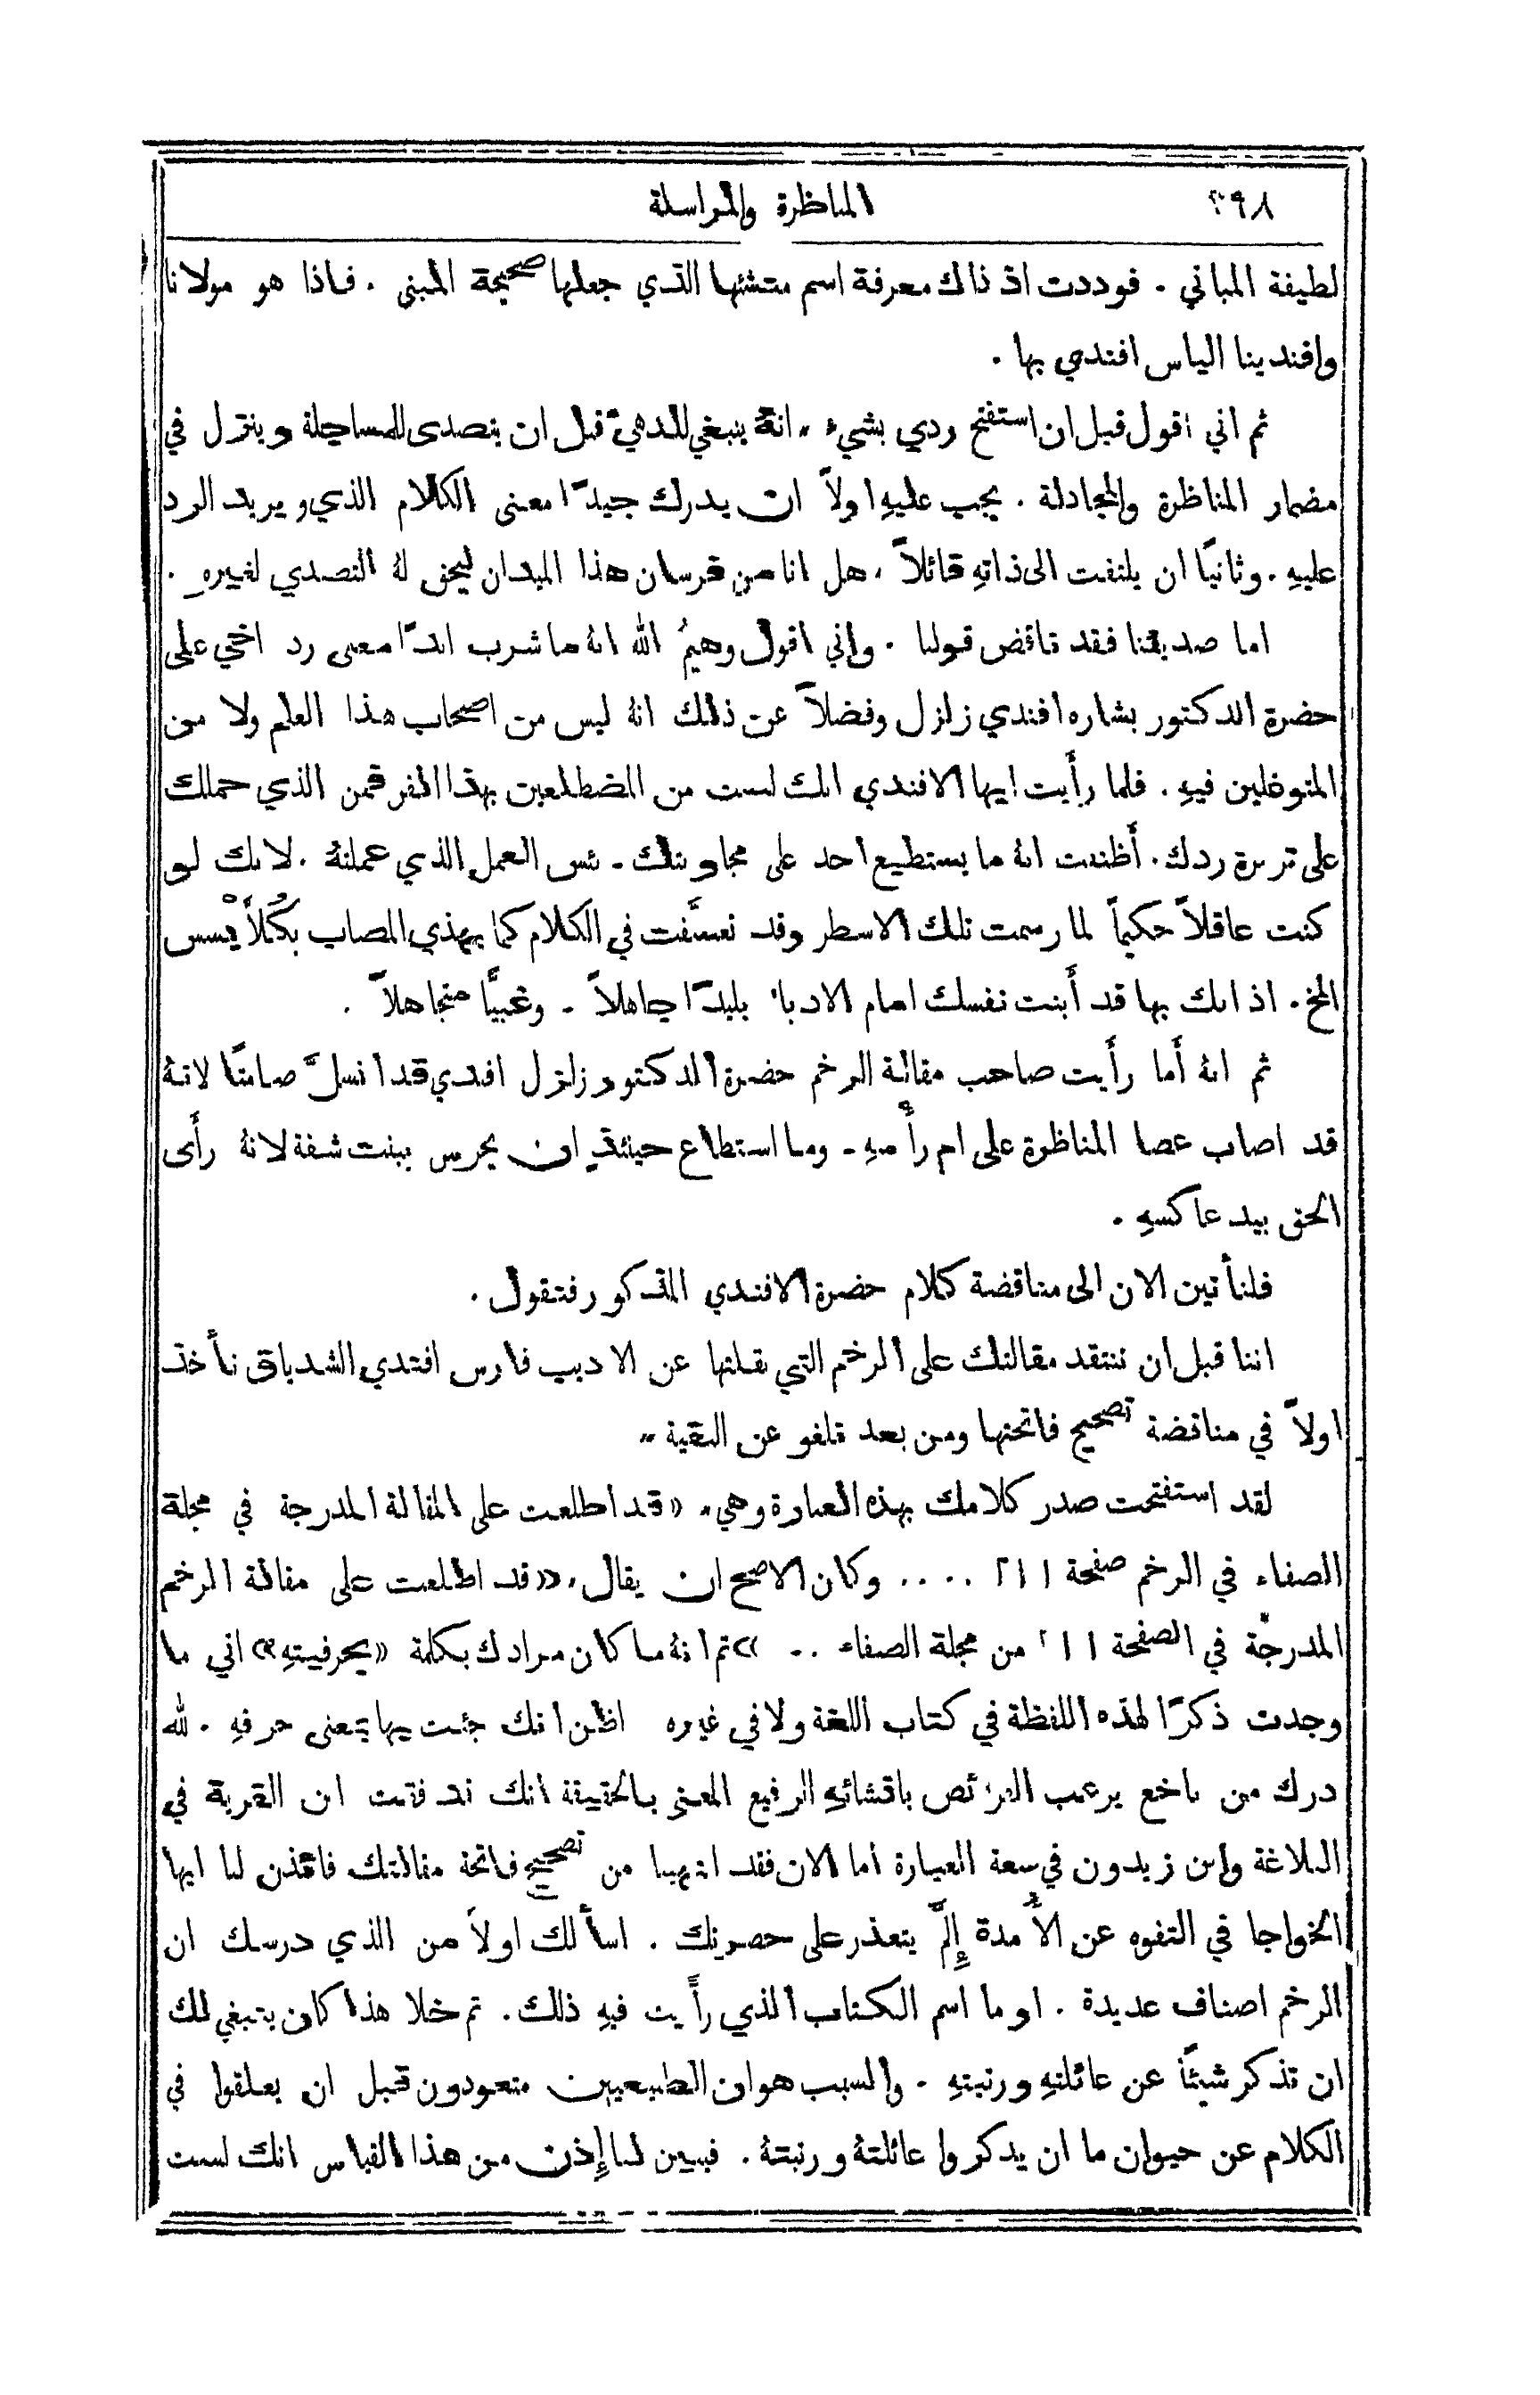 ٢٩٨ المناظرة والمراسلة
لطيفة المباني . فوددت اذ ذاك معرفة اسم منشئها الذي جعلها صحيحة المبنى . فاذا هو مولانا
وافندينا الياس افندي بها .
ثم اني اقول قبل ان استفتح ردي بشيء . انهُ ينبغي للدهيّ قبل ان يتصدى للمساجلة وينزل في
مضمار المناظرة والمجادلة . يجب عليهِ اولاً ان يدرك جيدًا معنى الكلام الذي يريد الرد
عليهِ . وثانيًا ان يلتفت الى ذاتهِ قائلاً . هل انا من فرسان هذا الميدان ليحق لهُ التصدي لغيرهِ .
اما صديقنا فقد ناقض قولنا . واني اقول وهيمُ الله انهُ ما شرب ابدًا معنى رد اخي على
حضرة الدكتور بشاره افندي زلزل وفضلاً عن ذلك انهُ ليس من اصحاب هذا العلم ولا من
المتوغلين فيهِ . فلما رأيت ايها الافندي انك لست من المضطلعين بهذا الفن فمن الذي حملك
على ردك . أظننت انهُ ما يستطيع احد على مجاوبتك . بئس العمل الذي عملتهُ . لانك لو
كنت عاقلاً حكيمًا لما رسمت تلك الاسطر وقد تعسَّفت في الكلام كما يهذي المصاب
الخ . اذ انك بها قد أبنت نفسك امام الادباء بليدًا جاهلاً . وغبيًّا متجاهلاً .
ثم انهُ أما رأيت صاحب مقالة الرخم حضرة الدكتور زلزل افندي قد انسلَّ صامتًا لانهُ
قد اصاب عصا المناظرة على ام رأسهِ . وما استطاع حينئذٍ ان يحرس ببنت شفة لانهُ رأى
الحق بيد عاكسهِ .
فلنأتين الان الى مناقضة كلام حضرة الافندي المذكور فنقول .
اننا قبل ان ننتقد مقالتك على الرخم التي نقلتها عن الاديب فارس افندي الشدياق نأخذ
اولاً في مناقضة تصحيح فاتحتها ومن بعد نلغو عن البقية .
لقد استفتحت صدر كلامك بهذه العبارة وهي . «قد اطلعت على المقالة المدرجة في مجلة
الصفاء في الرخم صفحة ٢١١ .... وكان الاصح ان يقال . «قد اطلعت على مقالة الرخم
المدرجة في الصفحة ٢١١ من مجلة الصفاء .. » ثم انهُ ما كان مرادك بكلمة «بحرفيتهِ» اني ما
وجدت ذكرًا لهذه اللفظة في كتاب اللغة ولا في غيره اظن انك جئت بها بمعنى حرفهِ . لله
درك من باخع يرعب الفرائص بافشائهِ الرفيع المعنى بالحقيقة انك قد فقت ابن القرية في
البلاغة وابن زيدون في سعة العبارة اما الان فقد انتهينا من تصحيح فاتحة مقالتك فائذن لنا ايها
الخواجا في التفوه عن الأُمدة إِلَّم يتعذر على حضرتك . اسألك اولاً من الذي درسك ان
الرخم اصناف عديدة . او ما اسم الكتاب الذي رأيت فيهِ ذلك . ثم خلا هذا كان ينبغي لك
ان تذكر شيئًا عن عائلتهِ ورتبتهِ . والسبب هو ان الطبيعيين متعودون قبل ان يعلقوا في
الكلام عن حيوان ما ان يذكروا عائلتهُ ورتبتهُ . فيبين لنا إِذن من هذا القياس انك لست